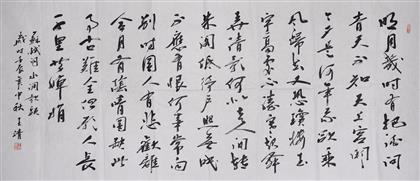 明月幾时有把酒问
青天不知天上宫阙
今夕是何年我欲乘
风歸去又恐瓊楼玉
宇高處不勝寒起舞
弄清影何似在人间转
朱阁低绮户照無眠
不應有恨何事長向
别时圆人有悲歡離
合月有陰晴圆缺此
事古難全但願人長
久千里共嬋娟
蘇軾词水调歌頭
歲时壬辰年中秋